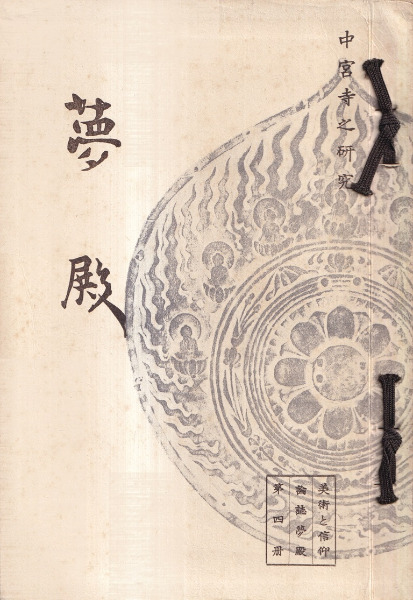 中宮寺之研究
夢殿
美術と信仰
論誌夢殿
第四册